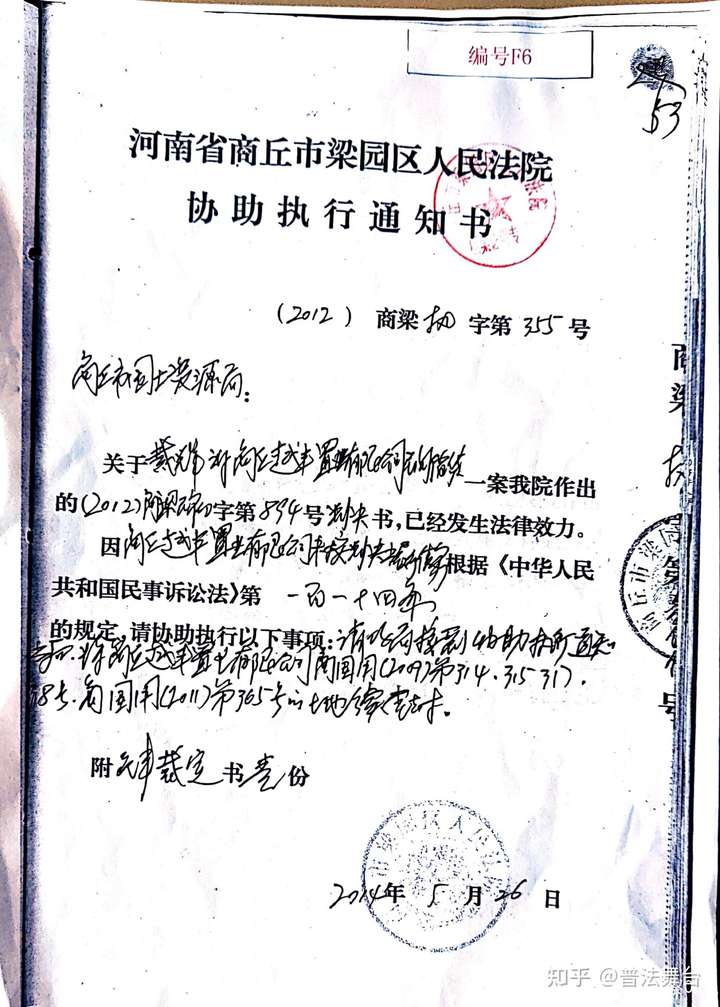 编号F6
53
河南省商丘市梁园区人民法院
协助执行通知书
(2012) 商梁执字第355号
商丘市国土资源局:
关于 诉商丘 置业有限公司 一案我院作出
的(2012)商梁 字第894号判决书,已经发生法律效力。
因商丘 置业有限公司未按判决 根据《中华人民
共和国民事诉讼法》第一百一十四条
的规定,请协助执行以下事项:请你局接到协助执行通知
书后,将商丘 置业有限公司商国用(2009)第314.315 317.
318号.商国用(2011)第365号的土地
附 裁定书壹份
2014年5月26日
商梁执
知乎 @普法舞台